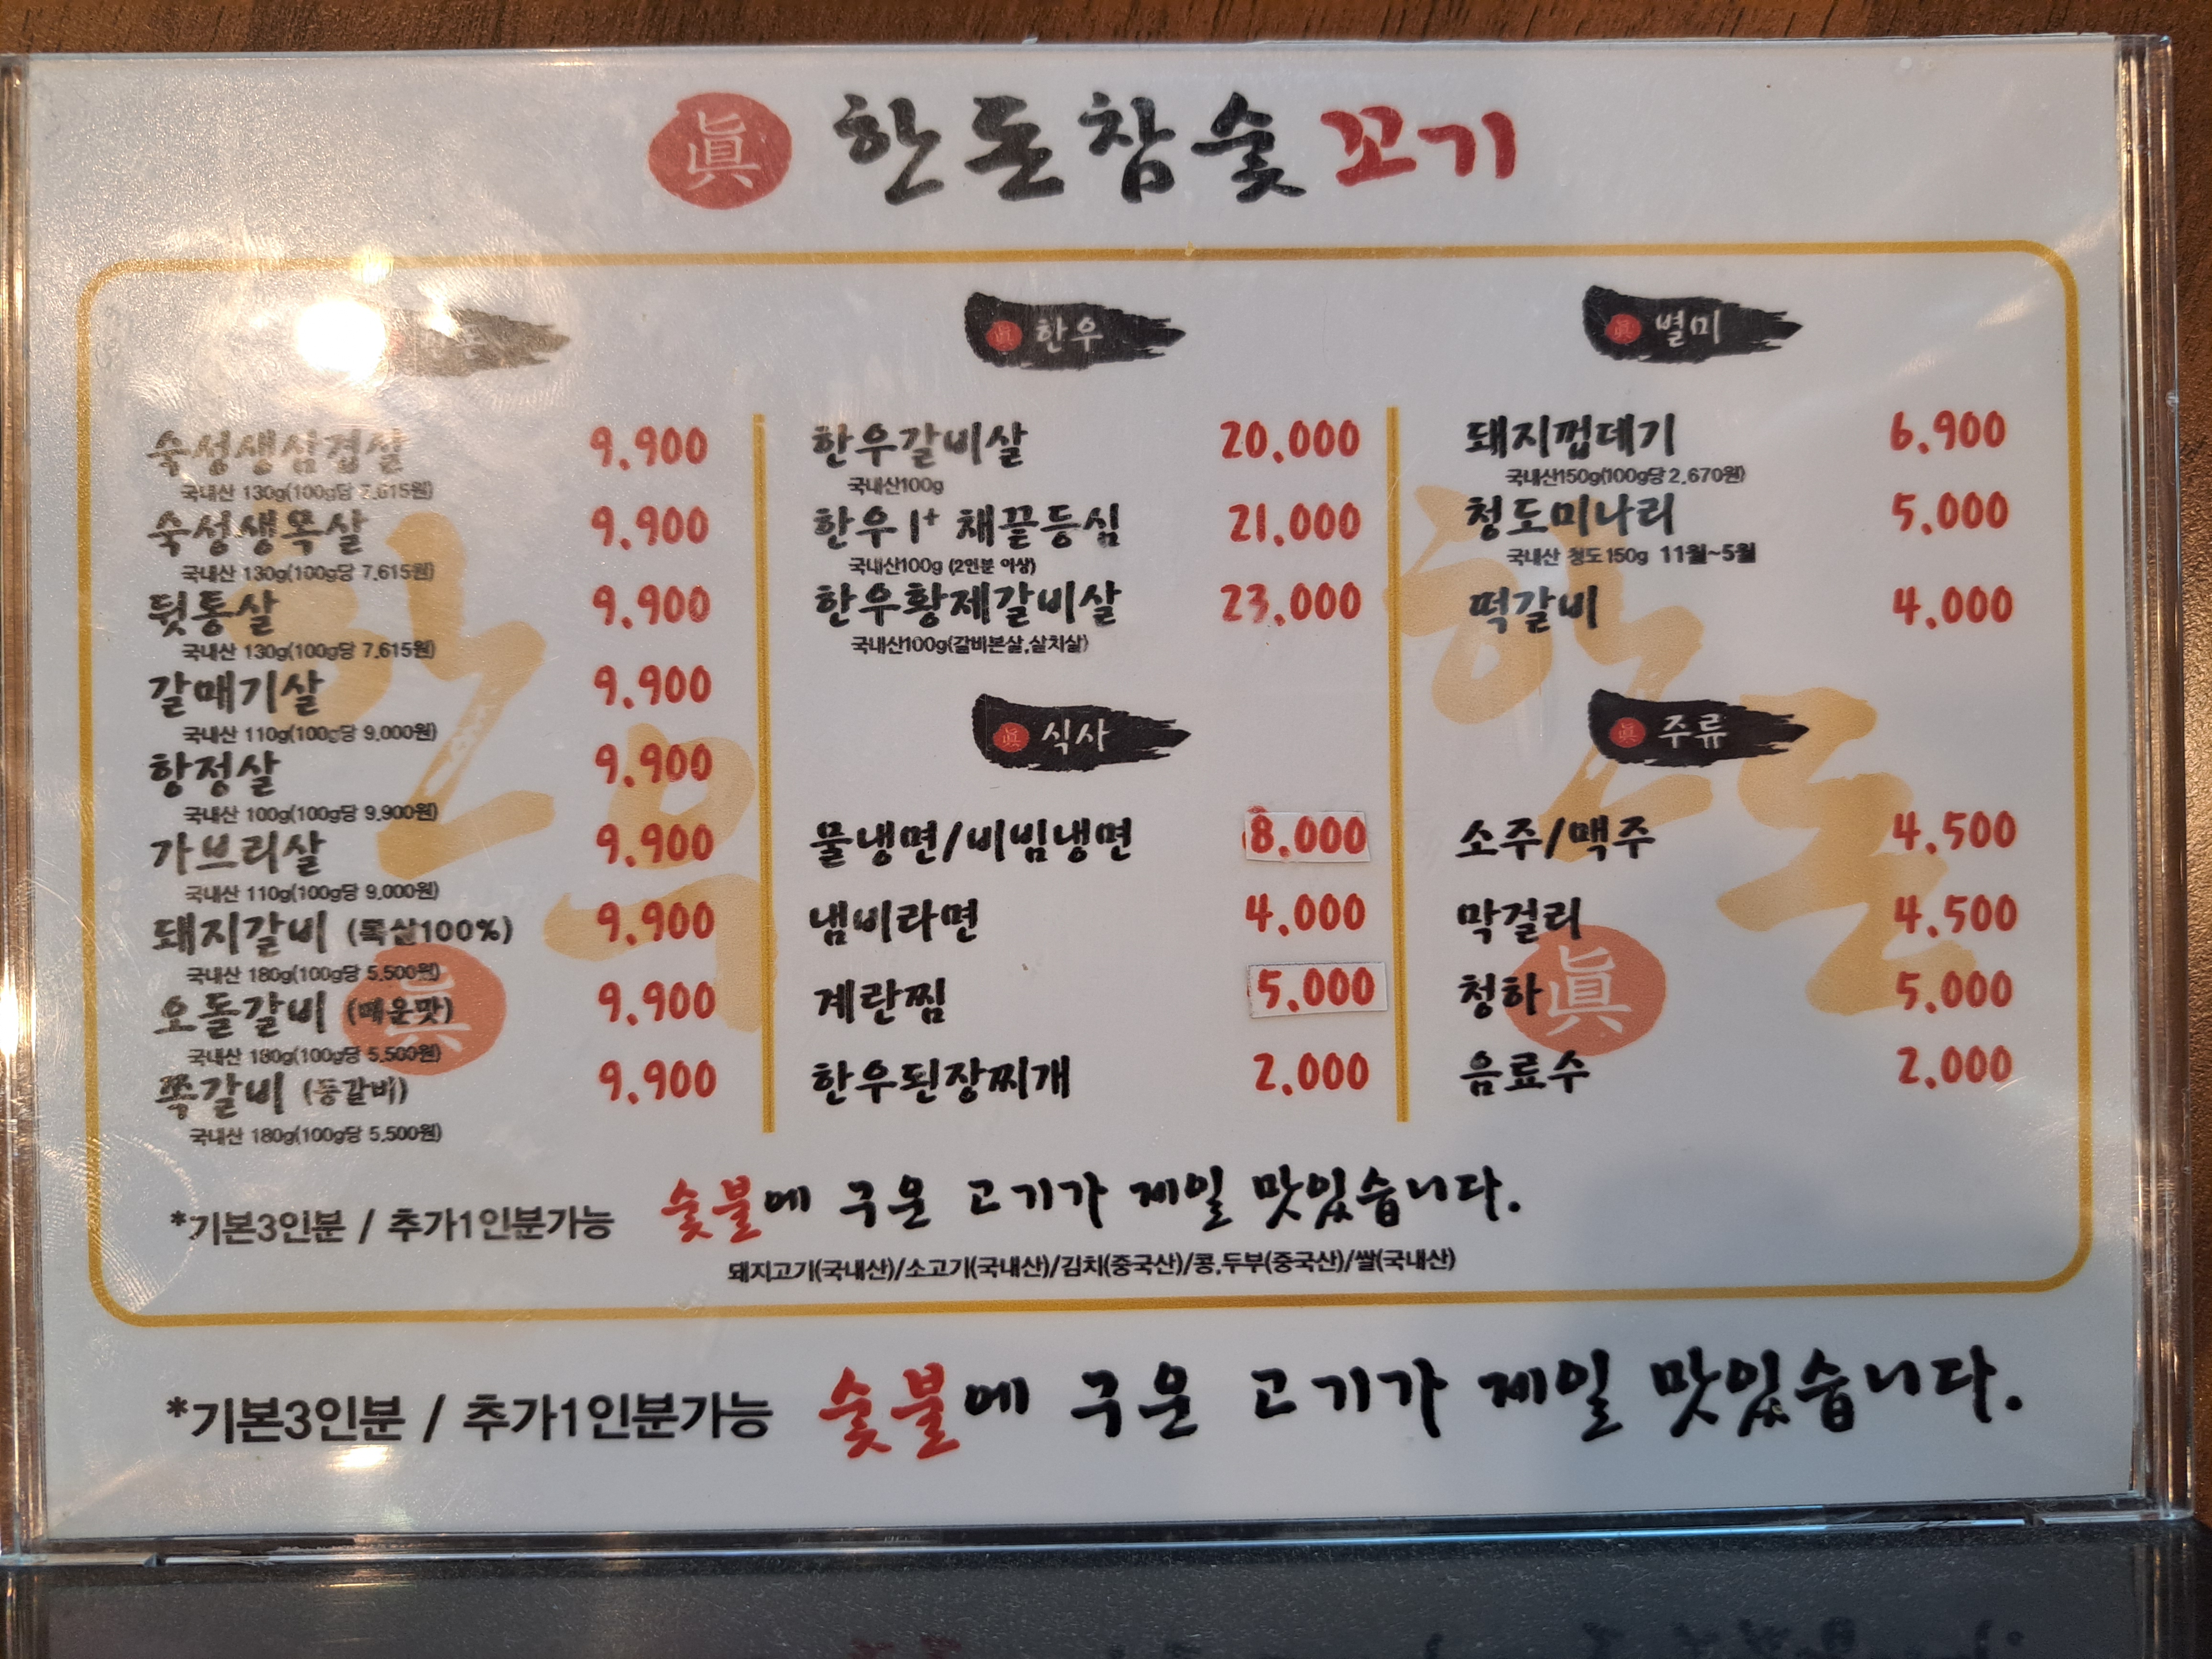 眞 한돈참숯꼬기
한돈
숙성생삼겹살 9.900
국내산 130g(100g당 7.615원)
숙성생목살 9.900
국내산 130g(100g당 7.615원)
뒷통살 9.900
국내산 130g(100g당 7.615원)
갈매기살 9.900
국내산 110g(100g당 9.000원)
항정살 9.900
국내산 100g(100g당 9.900원)
가브리살 9.900
국내산 110g(100g당 9.000원)
돼지갈비 (목살100%) 9.900
국내산 180g(100g당 5.500원)
오돌갈비 (매운맛) 9.900
국내산 180g(100g당 5.500원)
쪽갈비 (등갈비) 9.900
국내산 180g(100g당 5.500원)
眞
眞 한우
한우갈비살 20.000
국내산100g
한우1+ 채끝등심 21.000
국내산100g (2인분 이상)
한우황제갈비살 23.000
국내산100g(갈비본살,살치살)
眞 식사
물냉면/비빔냉면 8.000
냄비라면 4.000
계란찜 5.000
한우된장찌개 2.000
眞 별미
돼지껍데기 6.900
국내산150g(100g당 2.670원)
청도미나리 5.000
국내산 청도150g 11월~5월
떡갈비 4.000
眞 주류
소주/맥주 4.500
막걸리 4.500
청하 5.000
음료수 2.000
眞
*기본3인분 / 추가1인분가능 숯불에 구운 고기가 제일 맛있습니다.
돼지고기(국내산)/소고기(국내산)/김치(중국산)/콩,두부(중국산)/쌀(국내산)
*기본3인분 / 추가1인분가능 숯불에 구운 고기가 제일 맛있습니다.